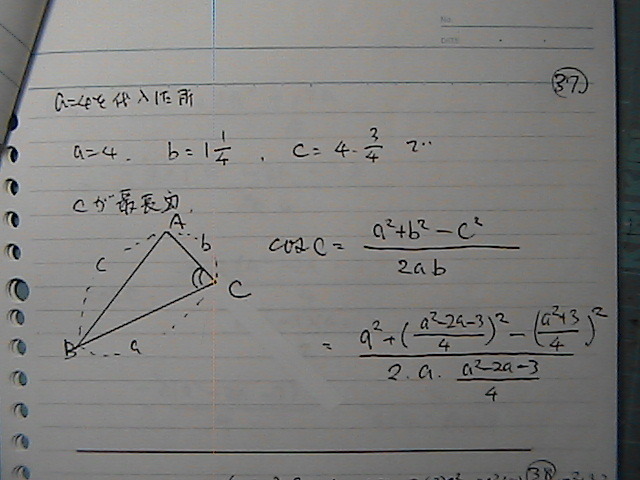 No.
DATE
37
a=4を代入した所
a=4. b=1 1/4 , c=4・3/4 で…
Cが最長辺.
A
b
c
C
B
a
cos C = (a²+b²-c²)/(2ab)
= (a²+((a²-2a-3)/4)²-((a²+3)/4)²)/(2・a・(a²-2a-3)/4)
38